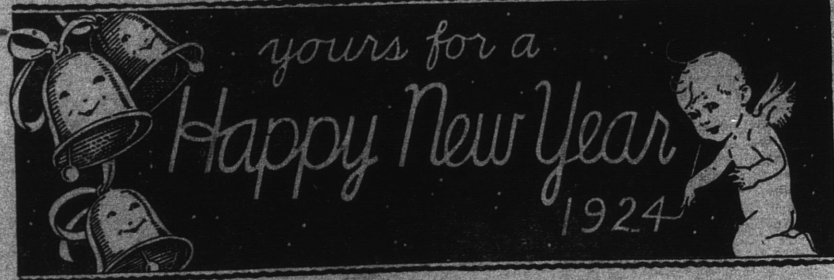 yours for a
Happy New Year
1924